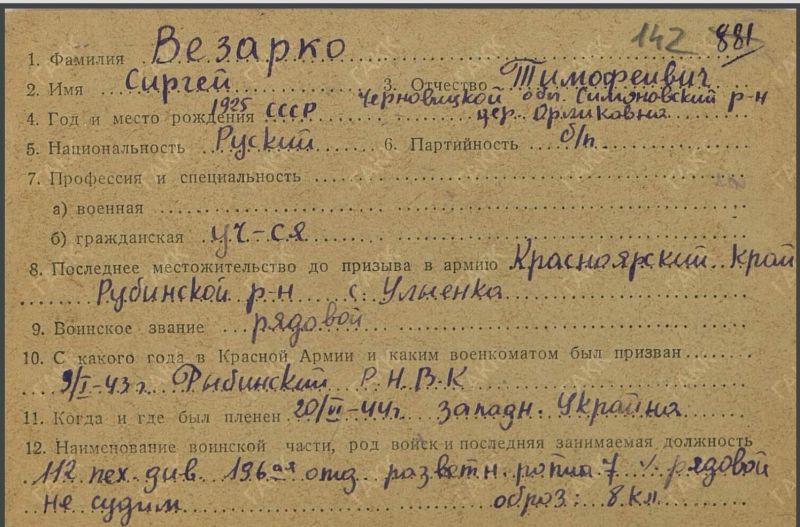 142 881
1. Фамилия Везарко
2. Имя Сиргей 3. Отчество Тимофеивич
4. Год и место рождения 1925 СССР Черновицкой обл. Симоновский р-н
дер.
5. Национальность Руский 6. Партийность б/п
7. Профессия и специальность
а) военная
б) гражданская уч-ся
8. Последнее местожительство до призыва в армию Красноярский край
Рубинской р-н с. Улыенка
9. Воинское звание рядовой
10. С какого года в Красной Армии и каким военкоматом был призван
9/I-43 г. Рыбинский Р.Н.В.К
11. Когда и где был пленен 20/VI-44 г. западн. Украйна
12. Наименование воинской части, род войск и последняя занимаемая должность
112 пех. див. 196ая отд. рота рядовой
не судим образ: 8 кл.